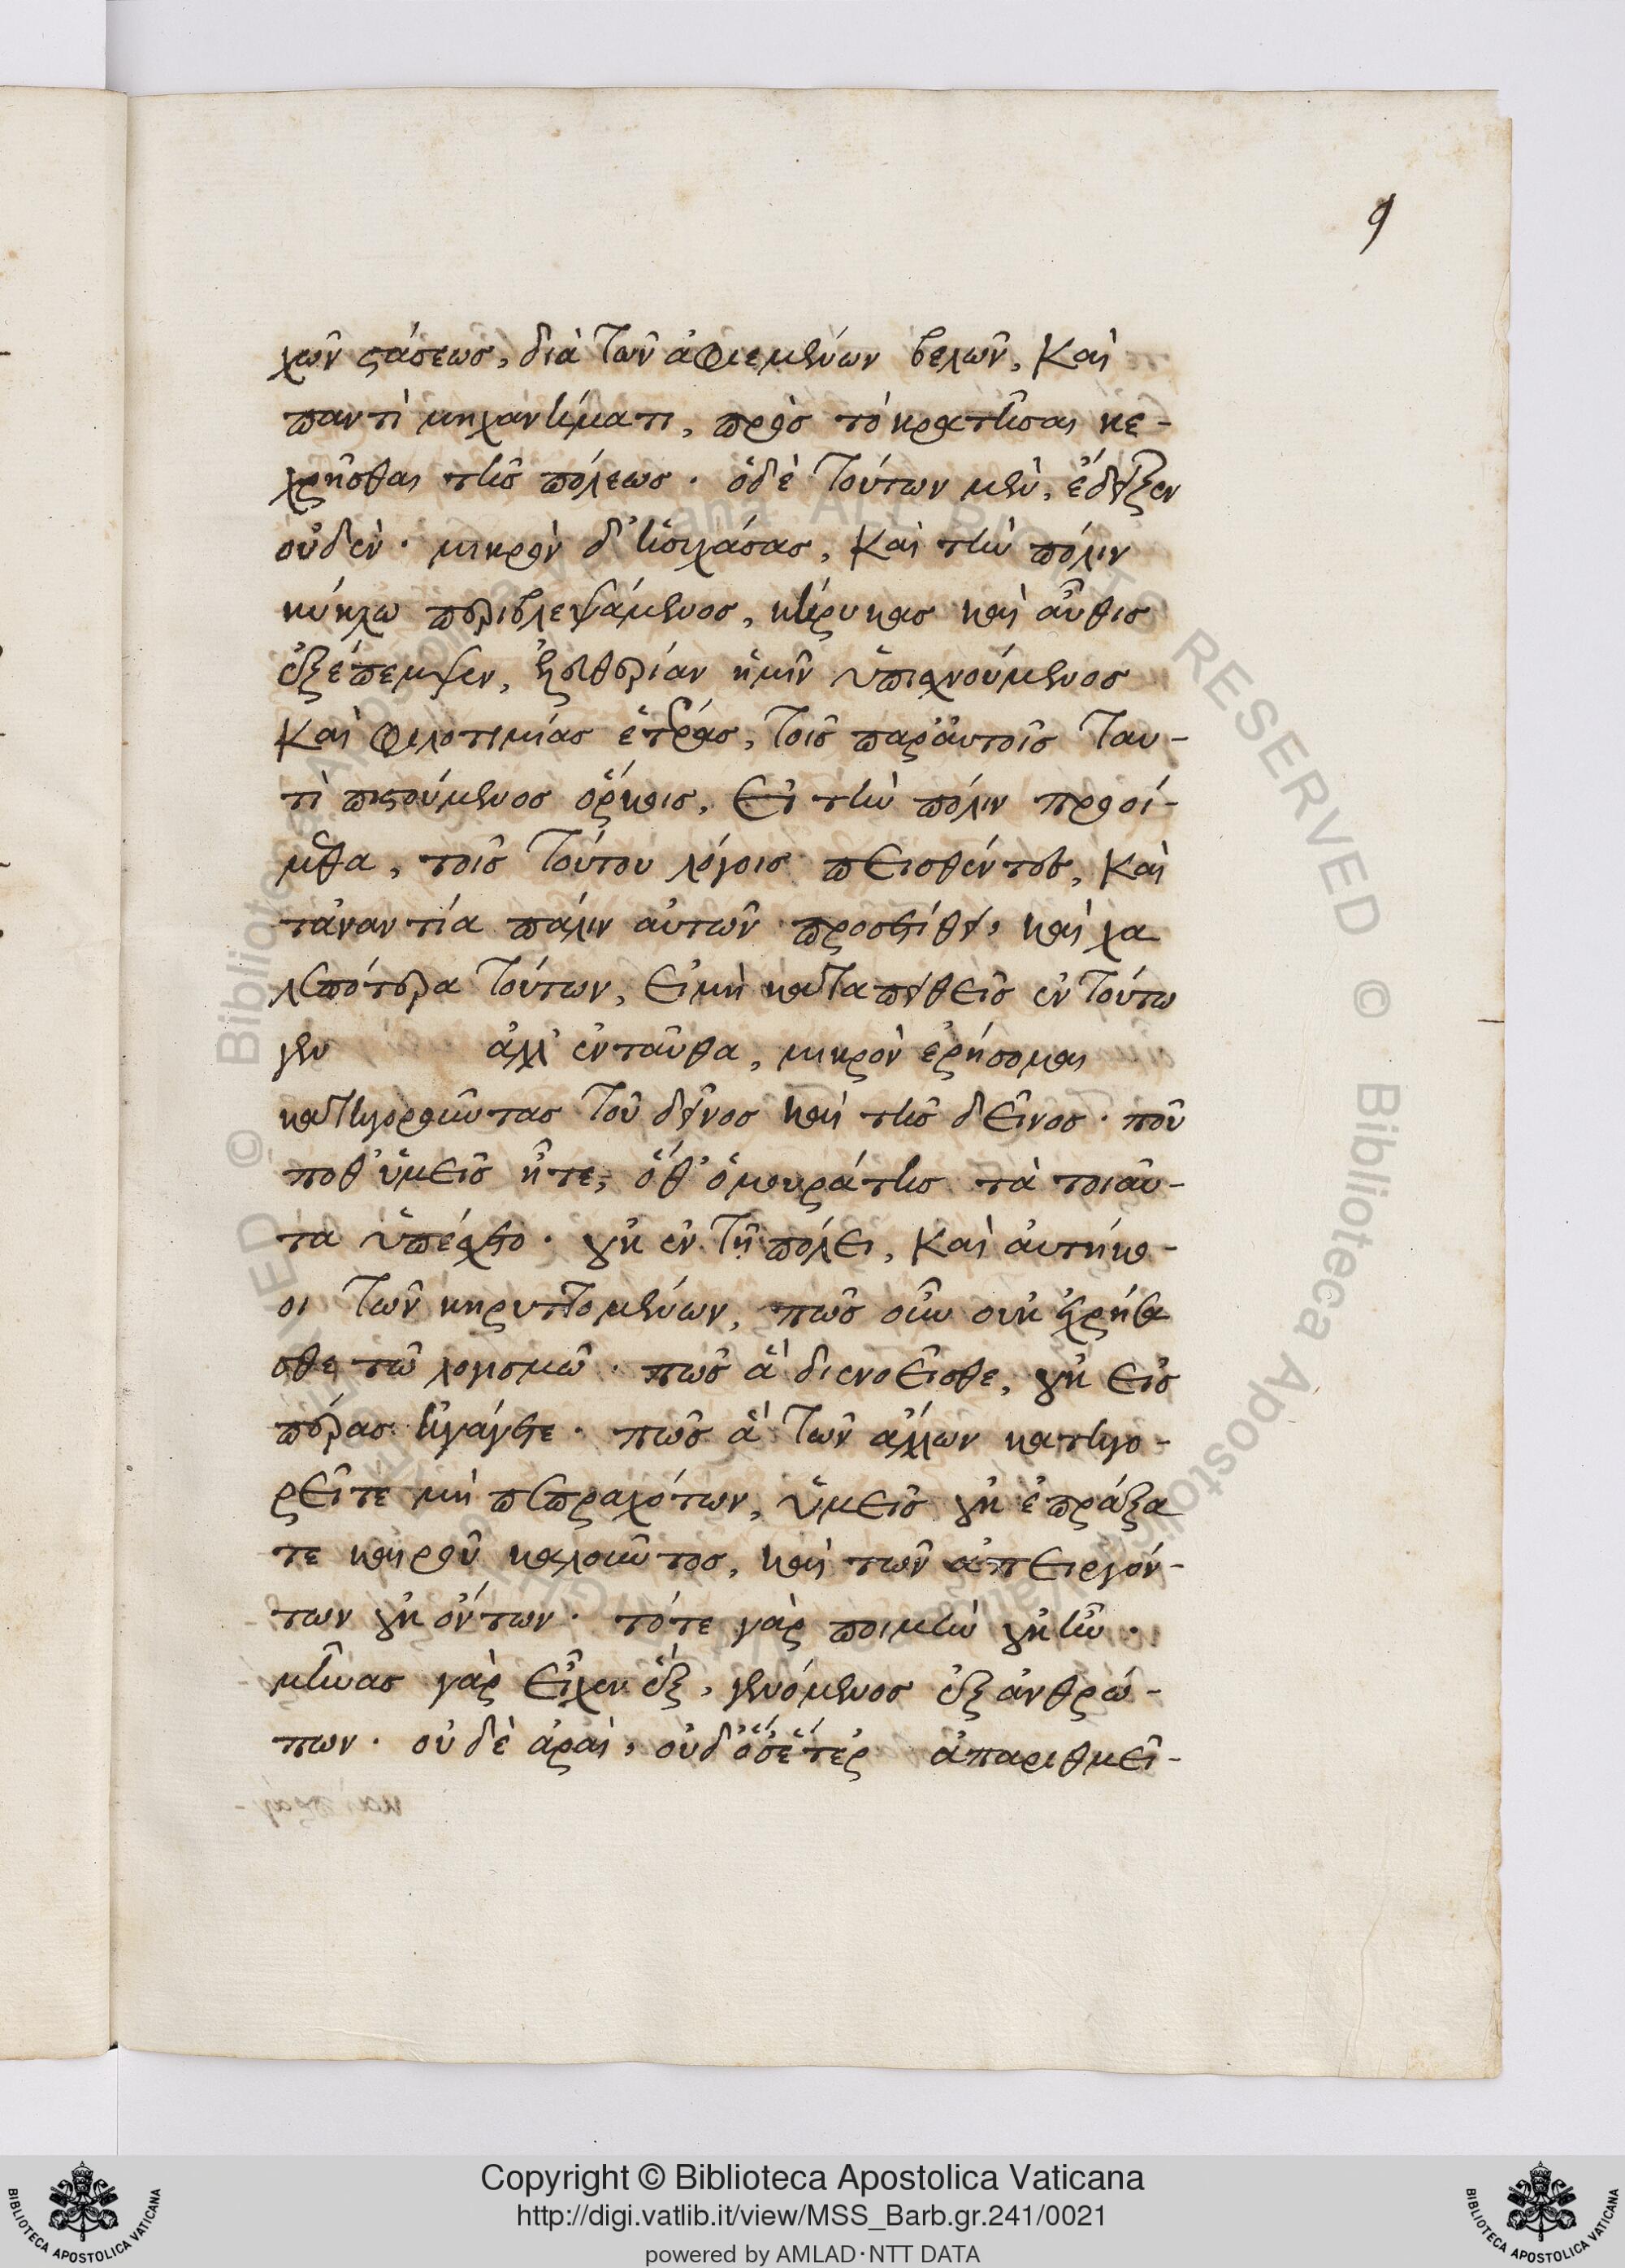 9
χῶν στάσεως, διὰ τῶν ἀφιεμένων βελῶν, καὶ
παντὶ μηχανήματι, πρὸς τὸ κρατῆσαι κε-
χρῆσθαι τῆς πόλεως. ὁ δὲ τούτων μὲν, ἔδειξεν
οὐδέν. μικρὸν δ' ἡσυχάσας, καὶ τὴν πόλιν
κύκλω περιβλεψάμενος, κήρυκας καὶ αὖθις
ἐξέπεμψεν, ἐλευθερίαν ἡμῖν ὑπισχνούμενος
καὶ φιλοτιμίας ἑτέρας, τοῖς παρ' αὐτοῖς ταυ-
τὶ πιστούμενος ὅρκοις, εἰ τὴν πόλιν προοί-
μεθα, τοῖς τούτου λόγοις πεισθέντες, καὶ
τἀναντία πάλιν αὐτῶν προσετίθει, καὶ χα
λεπότερα τούτων, εἰ μὴ καταπειθεῖς ἐν τούτω
γεν ἀλλ' ἐνταῦθα, μικρὸν ἐρήσομαι
κατηγοροῦντας τοῦ δεῖνος καὶ τῆς δεῖνος. ποῦ
ποθ' ὑμεῖς ἦτε, ὅθ' ὁ μουράτης τὰ τοιαῦ-
τα ὑπέσχετο. οὐκ ἐν τῇ πόλει, καὶ αὐτήκο-
οι τῶν κηρυττομένων, πῶς οὖν οὐκ ἐχρήσα
σθε τῶ λογισμῶ. πῶς ἃ διενοεῖσθε, οὐκ εἰς
πέρας ἠγάγετε. πῶς ἃ τῶν ἄλλων κατηγο-
ρεῖτε μὴ πεπραχότων, ὑμεῖς οὐκ ἐπράξα
τε καιροῦ καλοῦντος, καὶ τῶν ἀπειργόν-
των οὐκ ὄντων. τότε γὰρ ποιμὴν οὐκ ἦν.
μῆνας γὰρ εἶχεν ἓξ, γενόμενος ἐξ ἀνθρώ-
πων. οὐδὲ ἀραὶ, ἀπαριθμεῖ-
Copyright © Biblioteca Apostolica Vaticana
http://digi.vatlib.it/view/MSS_Barb.gr.241/0021
powered by AMLAD·NTT DATA